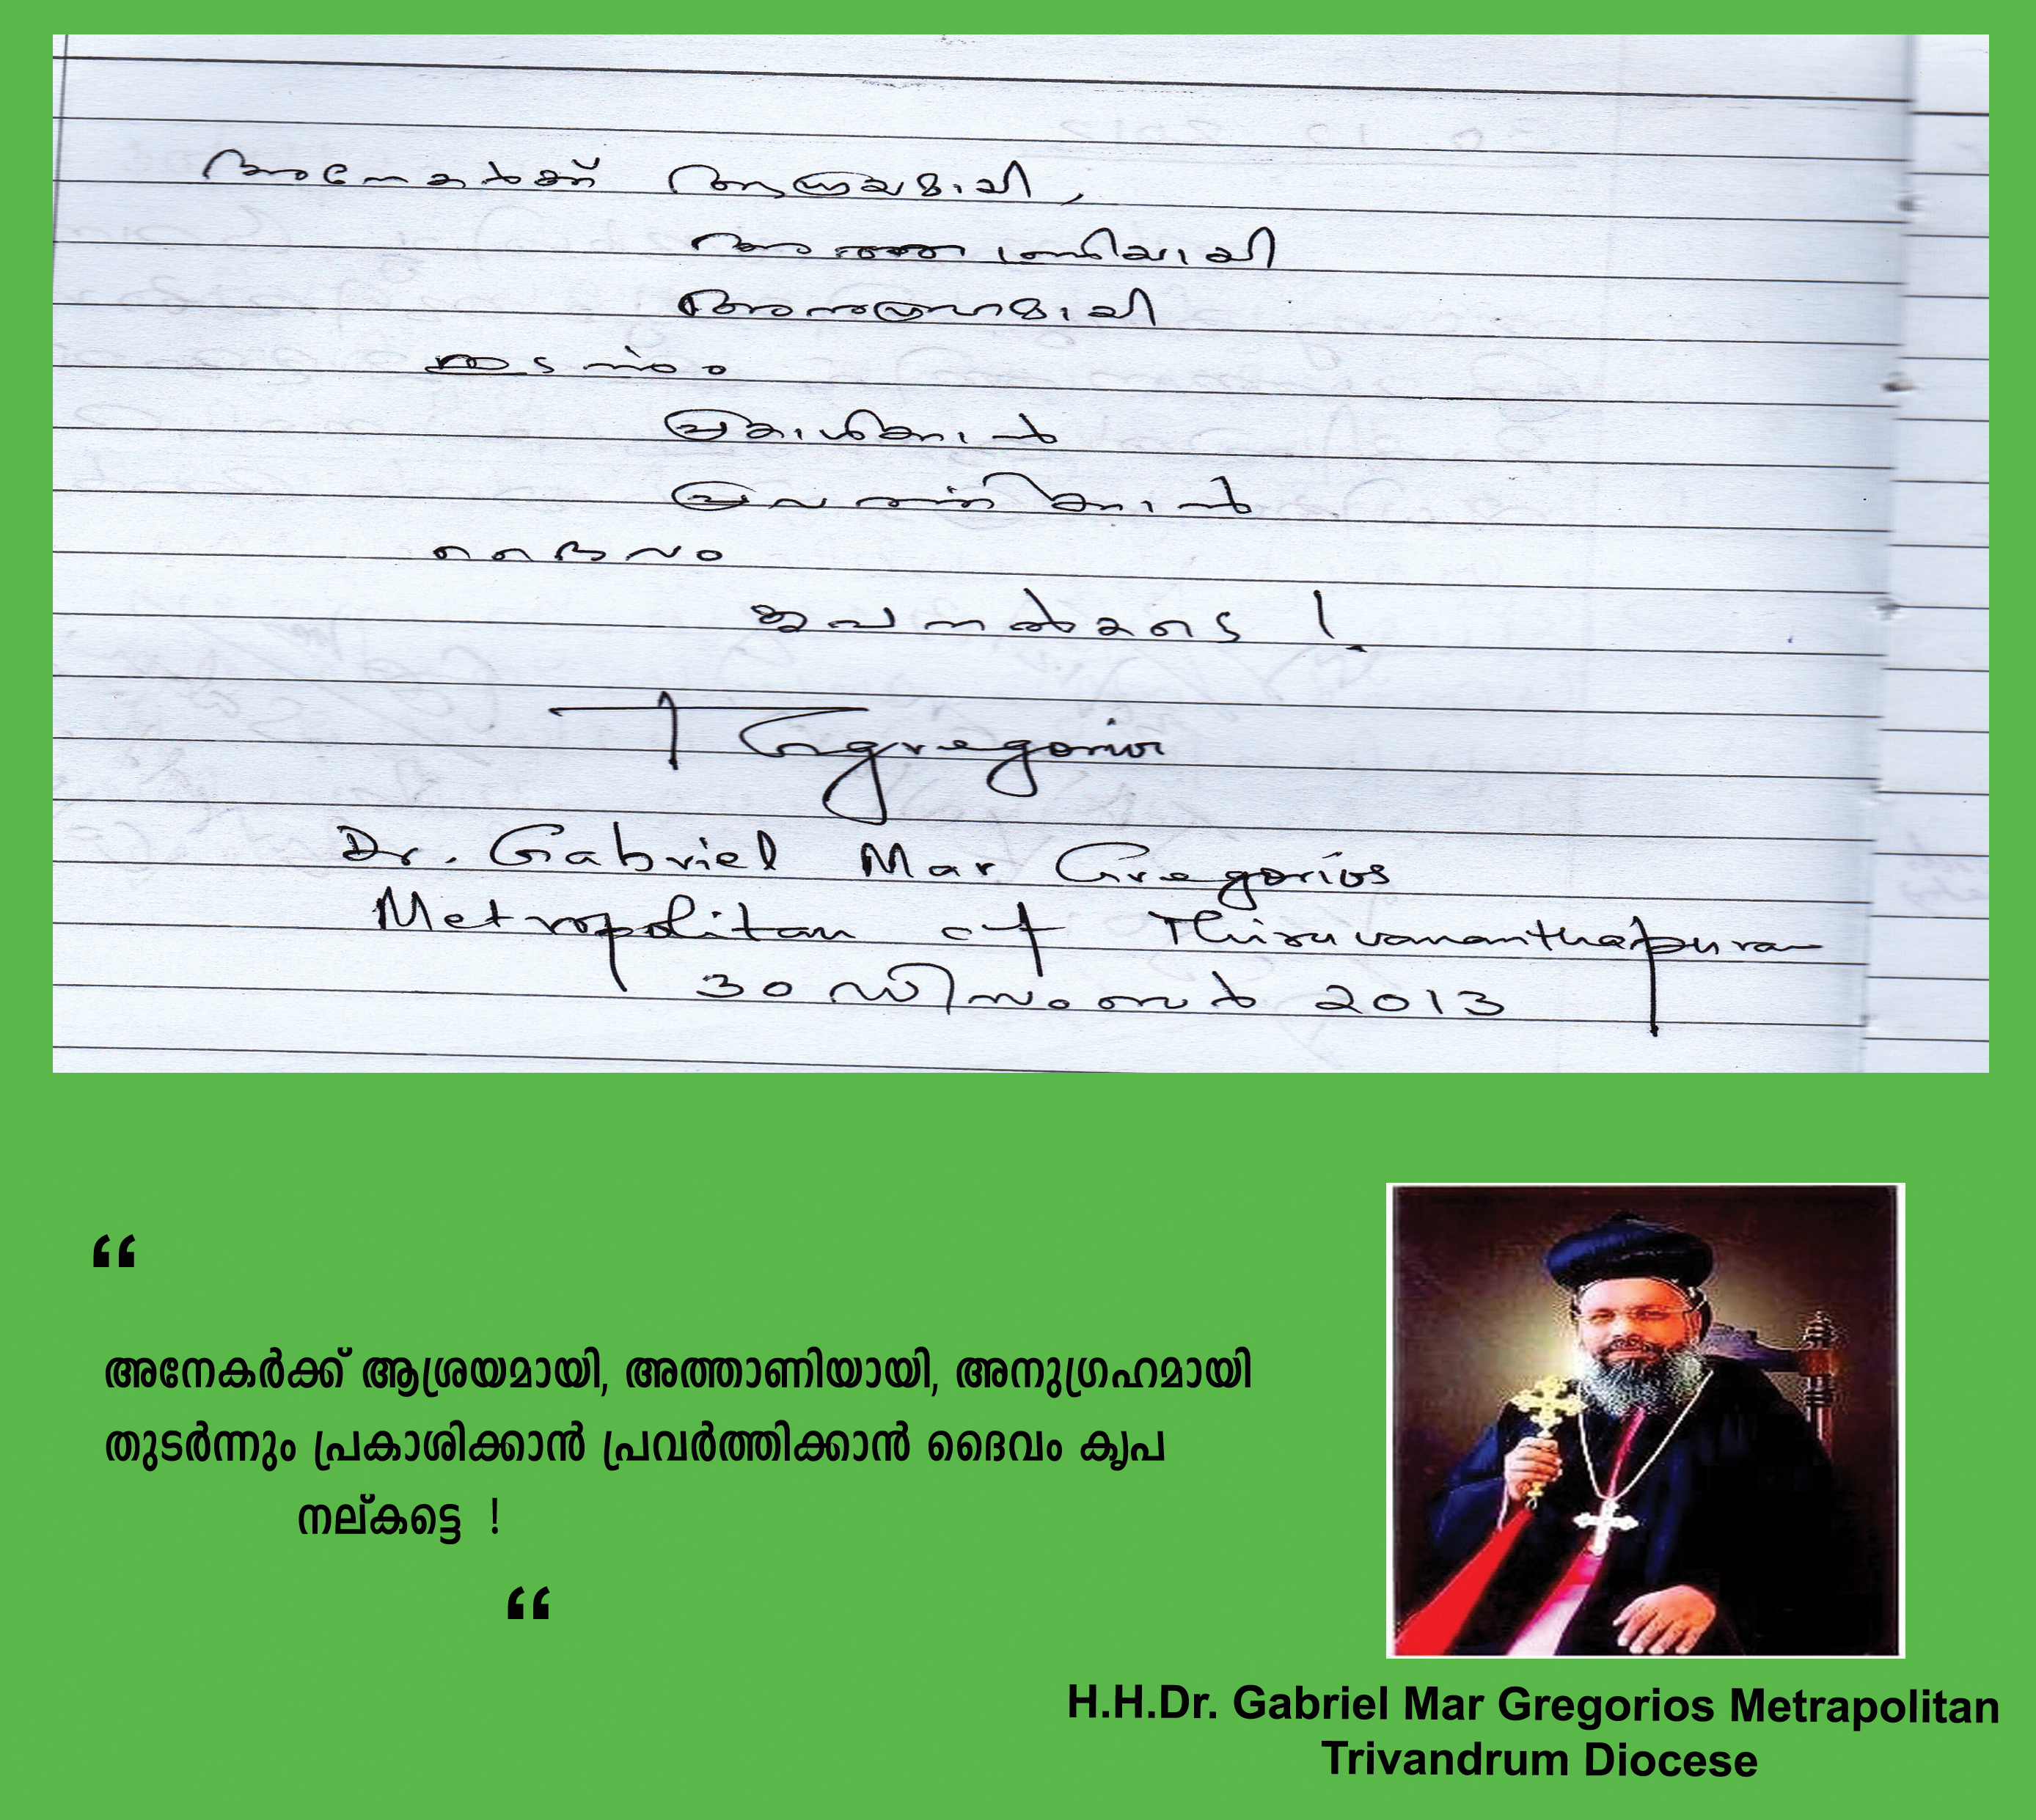 അനേകർക്ക് ആശ്രയമായി,
അത്താണിയായി
അനുഗ്രഹമായി
തുടർന്നും
പ്രകാശിക്കാൻ
പ്രവർത്തിക്കാൻ
ദൈവം
കൃപ നൽകട്ടെ !
Gregorios
Dr. Gabriel Mar Gregorios
Metropolitan of Thiruvananthapuram
30 ഡിസംബർ 2013
“
അനേകർക്ക് ആശ്രയമായി, അത്താണിയായി, അനുഗ്രഹമായി
തുടർന്നും പ്രകാശിക്കാൻ പ്രവർത്തിക്കാൻ ദൈവം കൃപ
നല്കട്ടെ !
“
H.H.Dr. Gabriel Mar Gregorios Metrapolitan
Trivandrum Diocese